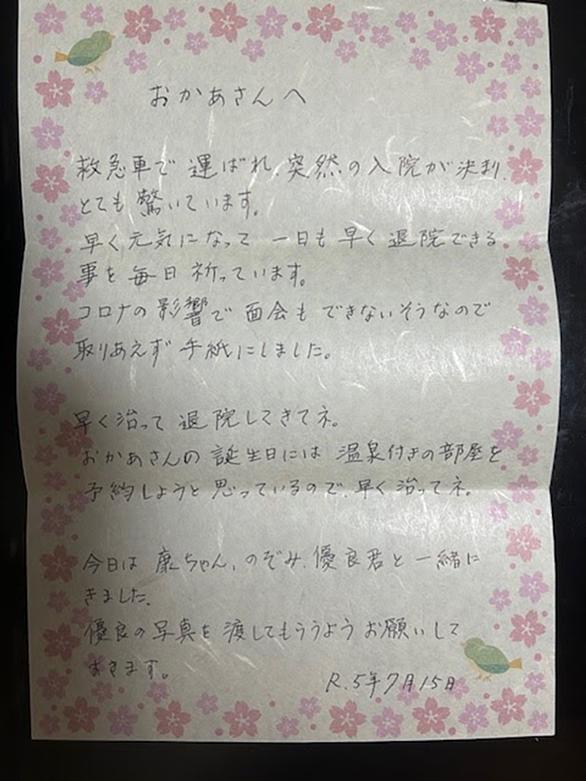 おかあさんへ
救急車で運ばれ、突然の入院が決まり、
とても驚いています。
早く元気になって一日も早く退院できる
事を毎日祈っています。
コロナの影響で面会もできないそうなので
取りあえず手紙にしました。
早く治って退院してきてネ。
おかあさんの誕生日には温泉付きの部屋を
予約しようと思っているので、早く治ってネ。
今日は康ちゃん、のぞみ、優良君と一緒に
きました。
優良の写真を渡してもううようお願いして
おきます。
R.5年7月15日